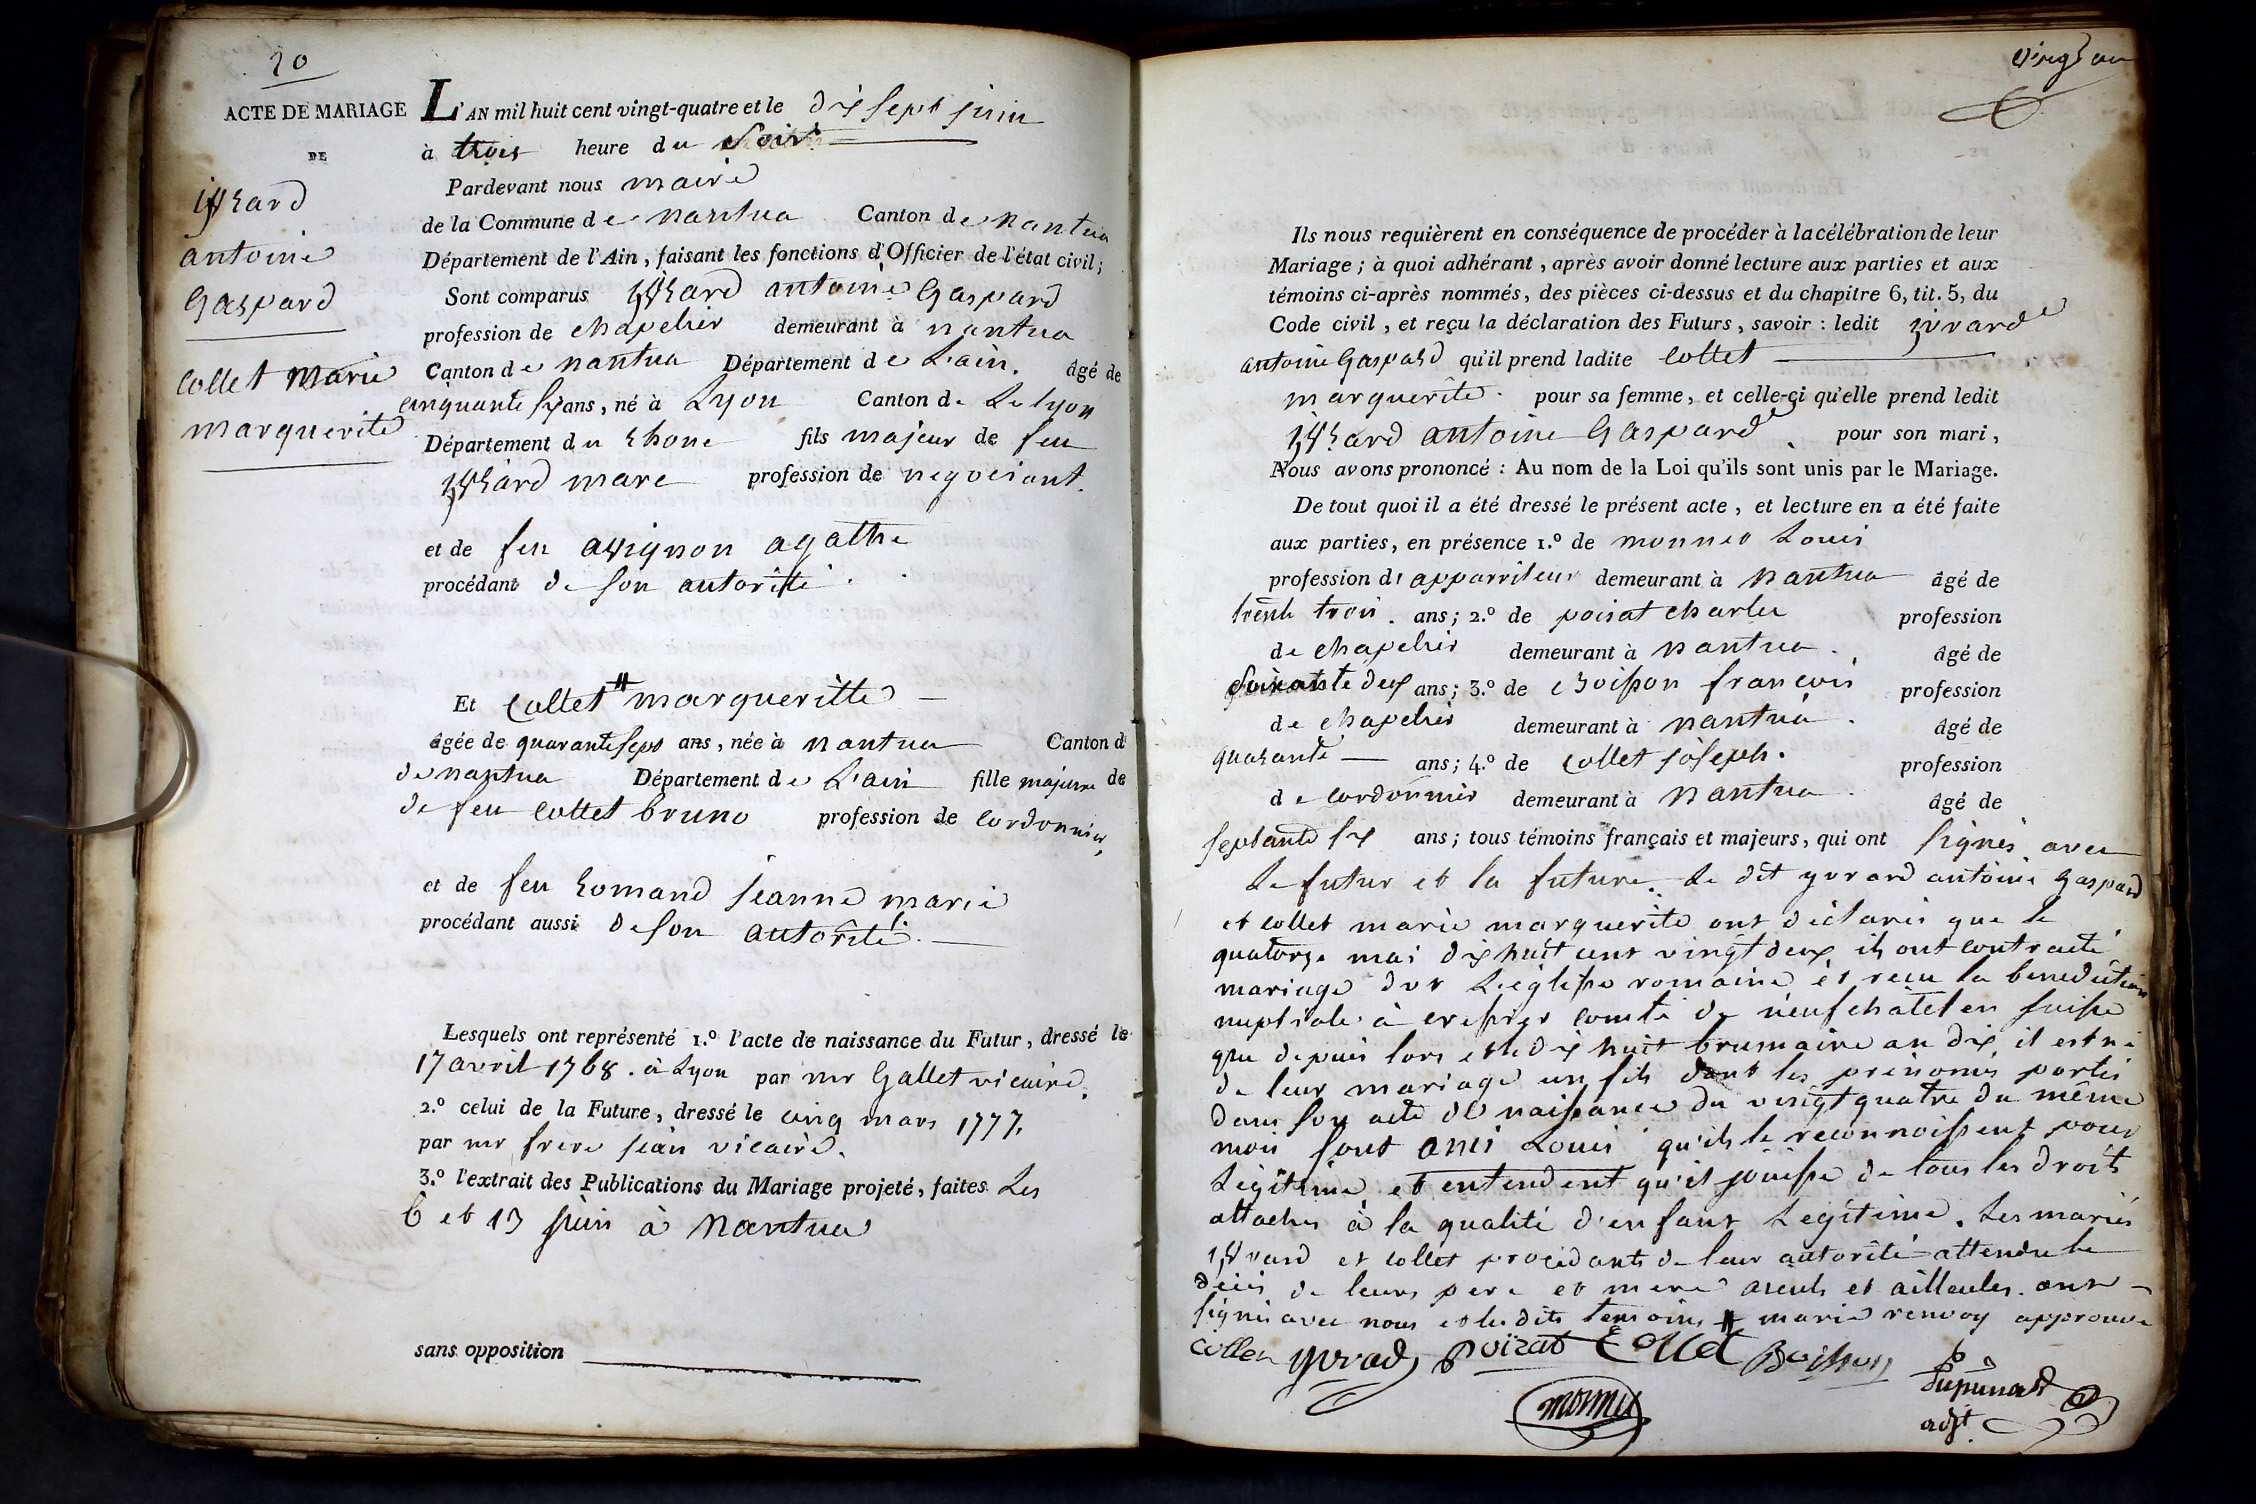 20
ACTE DE MARIAGE
DE
yvrard
antoine
Gaspard
Collet marie
marguerite
L'AN mil huit cent vingt-quatre et le dix sept juin
à trois heure du Soir
Pardevant nous maire
de la Commune de nantua Canton de nantua
Département de l'Ain, faisant les fonctions d'Officier de l'état civil;
Sont comparus yvrard antoine Gaspard
profession de chapelier demeurant à nantua
Canton de nantua Département de L'ain. âgé de
cinquante six ans, né à Lyon Canton de Le lyon
Département du rhone fils majeur de feu
yvrard marc profession de negociant.
et de feu avignon agathe
procédant de son autorité.
Et Collet # margueritte
âgée de quarante sept ans, née à nantua Canton d
de nantua Département de L'ain fille majeure de
de feu collet bruno profession de cordonnier,
et de feu romand jeanne marie
procédant aussi de son autorité.
Lesquels ont représenté 1.º l'acte de naissance du Futur, dressé le
17 avril 1768. à Lyon par mr Gallet vicaire.
2.º celui de la Future, dressé le cinq mars 1777,
par mr frere jean vicaire.
3.º l'extrait des Publications du Mariage projeté, faites Les
6 et 13 juin à Nantua
sans opposition
vingt un
Ils nous requièrent en conséquence de procéder à la célébration de leur
Mariage; à quoi adhérant, après avoir donné lecture aux parties et aux
témoins ci-après nommés, des pièces ci-dessus et du chapitre 6, tit. 5, du
Code civil, et reçu la déclaration des Futurs, savoir: ledit yvrard
antoine Gaspard qu'il prend ladite collet
marguerite. pour sa femme, et celle-çi qu'elle prend ledit
yvrard antoine Gaspard, pour son mari,
Nous avons prononcé: Au nom de la Loi qu'ils sont unis par le Mariage.
De tout quoi il a été dressé le présent acte, et lecture en a été faite
aux parties, en présence 1.º de monnet Louis
profession d' apparriteur demeurant à nantua âgé de
trente trois. ans; 2.º de poizat charles profession
de chapelier demeurant à nantua. âgé de
Soixante deux ans; 3.º de Boisson francois profession
de chapelier demeurant à nantua. âgé de
quarante ans; 4.º de collet joseph. profession
de cordonnier demeurant à nantua. âgé de
septante six ans; tous témoins français et majeurs, qui ont signés avec
Le futur et la future. Le dit yvrard antoine gaspard
et collet marie marguerite ont déclarés que le
quatorze mai dix huit cent vingt deux, ils ont contracté
mariage dvt L'eglise romaine et recu la benediction
nuptiale à cressier comté de neufchâtel en suisse
que depuis lors et le dix huit brumaire an dix il est né
de leur mariage un fils dont les prénoms portés
dans son acte de naissance du vingt quatre du même
mois sont Louis qu'ils le reconnoissent pour
Légitime et entendent qu'il jouisse de tous les droits
attachés à la qualité d'enfant Legitime. Les mariés
yvrard et collet procédants de leur autorité attendu le
décès de leurs pere et mere aieuls et ailleules. ont
signés avec nous et les dits temoins # marie renvoy approuve
collet yvrad poizat Collet Boisson
monnet
adjt.